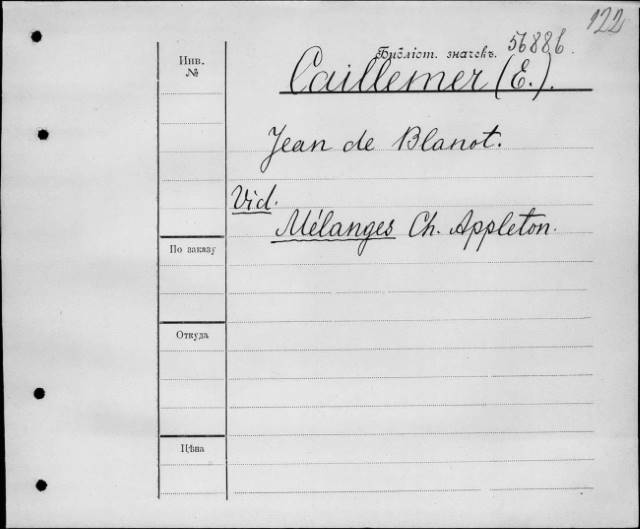 122
Библіот. значекъ. 56886.
Инв.
№
Caillemer (E.).
Jean de Blanot.
Vid.
Mélanges Ch. Appleton.
По заказу
Откуда
Цѣна